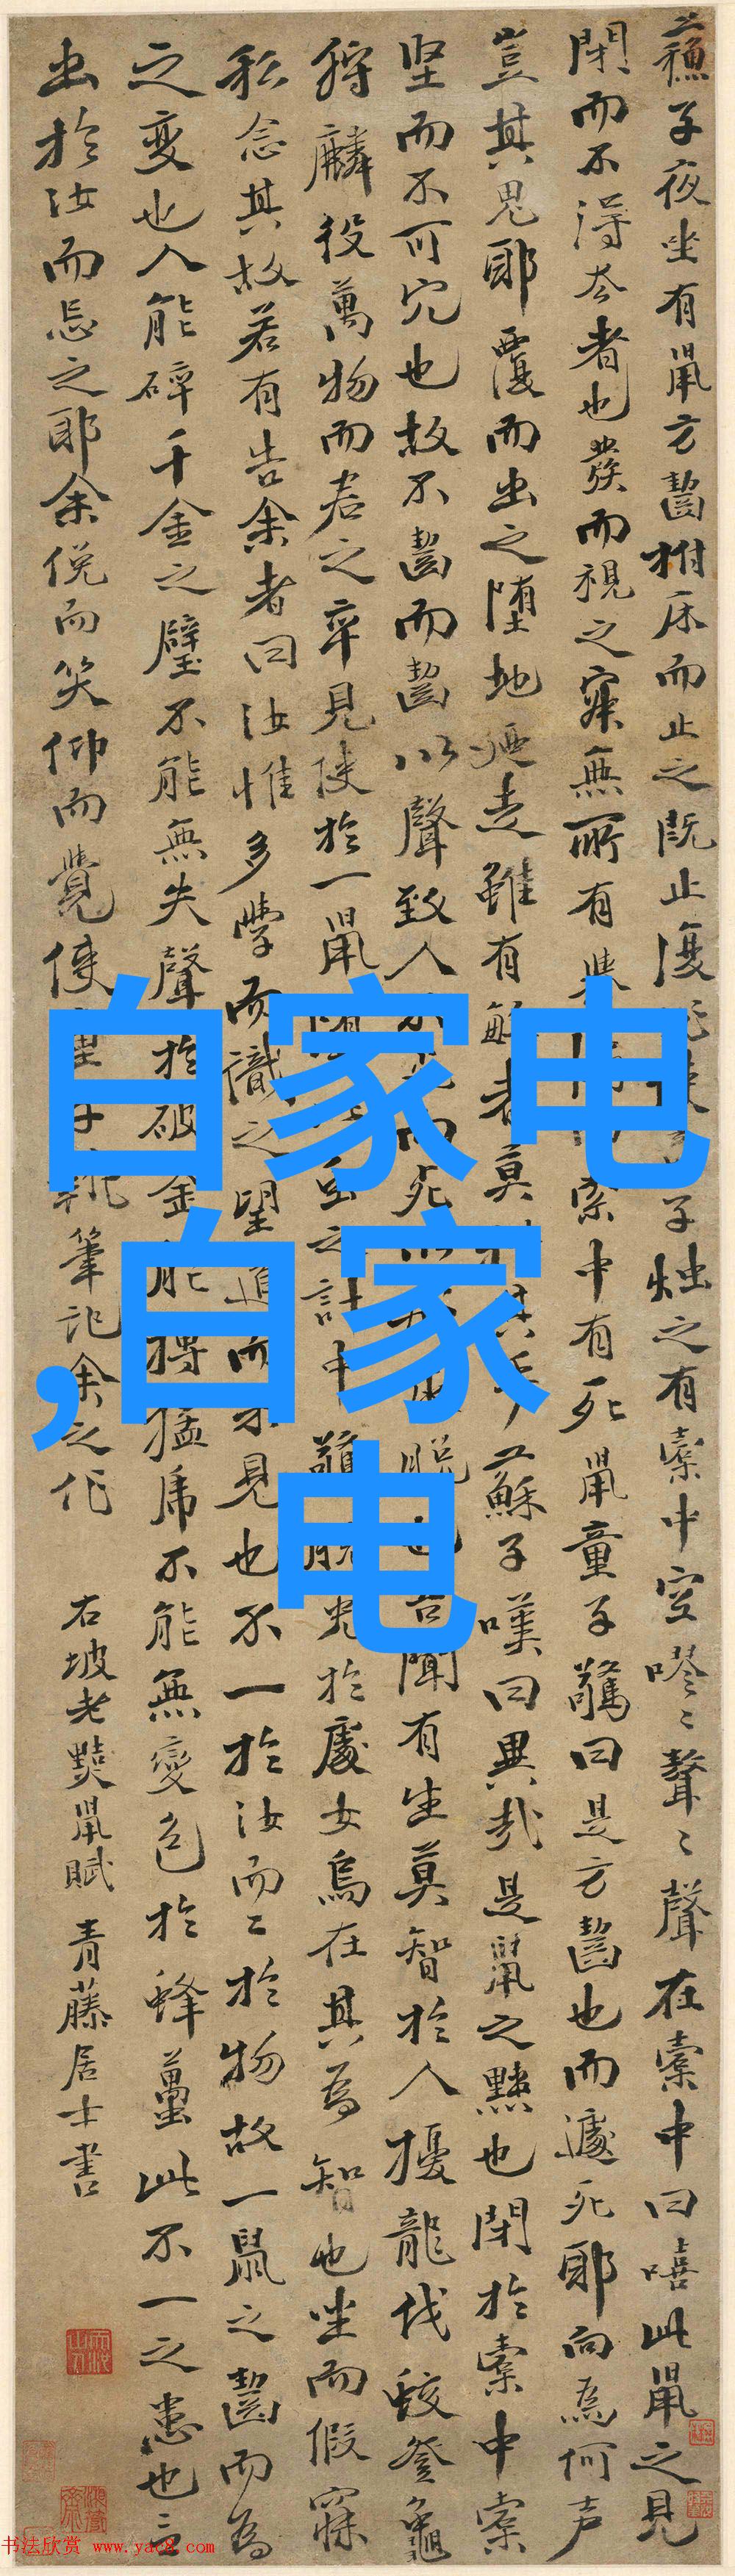 蘓子夜坐有鼠方齧拊床而止之既止復作使童子燭之有橐中空嘐〻聱〻聲在橐中曰嘻此鼠之見
閉而不得去者也發而視之寂無所有舉燭而索中有死鼠童子驚曰是方齧也而遽死耶向為何声
豈其鬼耶覆而出之墮地廼走雖有敏者莫措其手蘇子嘆曰異哉是鼠之黠也閉於橐中橐
堅而不可穴也故不齧而齧以聲致人不死而死以形求脫也吾聞有生莫智於人擾龍伐蛟登龜
狩麟役萬物而君之卒見使於一鼠墮此蟲之計中驚脫兔於處女烏在其為智也坐而假寐
私念其故若有告余者曰汝惟多學而識之望道而未見也不一於汝而二於物故一鼠之齧而為
之變也人能碎千金之璧不能無失聲於破釜能搏猛虎不能無變色於蜂蠆此不一之患也言
出於汝而忘之耶余俛而笑仰而覺使童子執筆記余之作 右坡老黠鼠賦 青藤居士書
自家电
,自家
电
书法欣赏 www.yac8.com